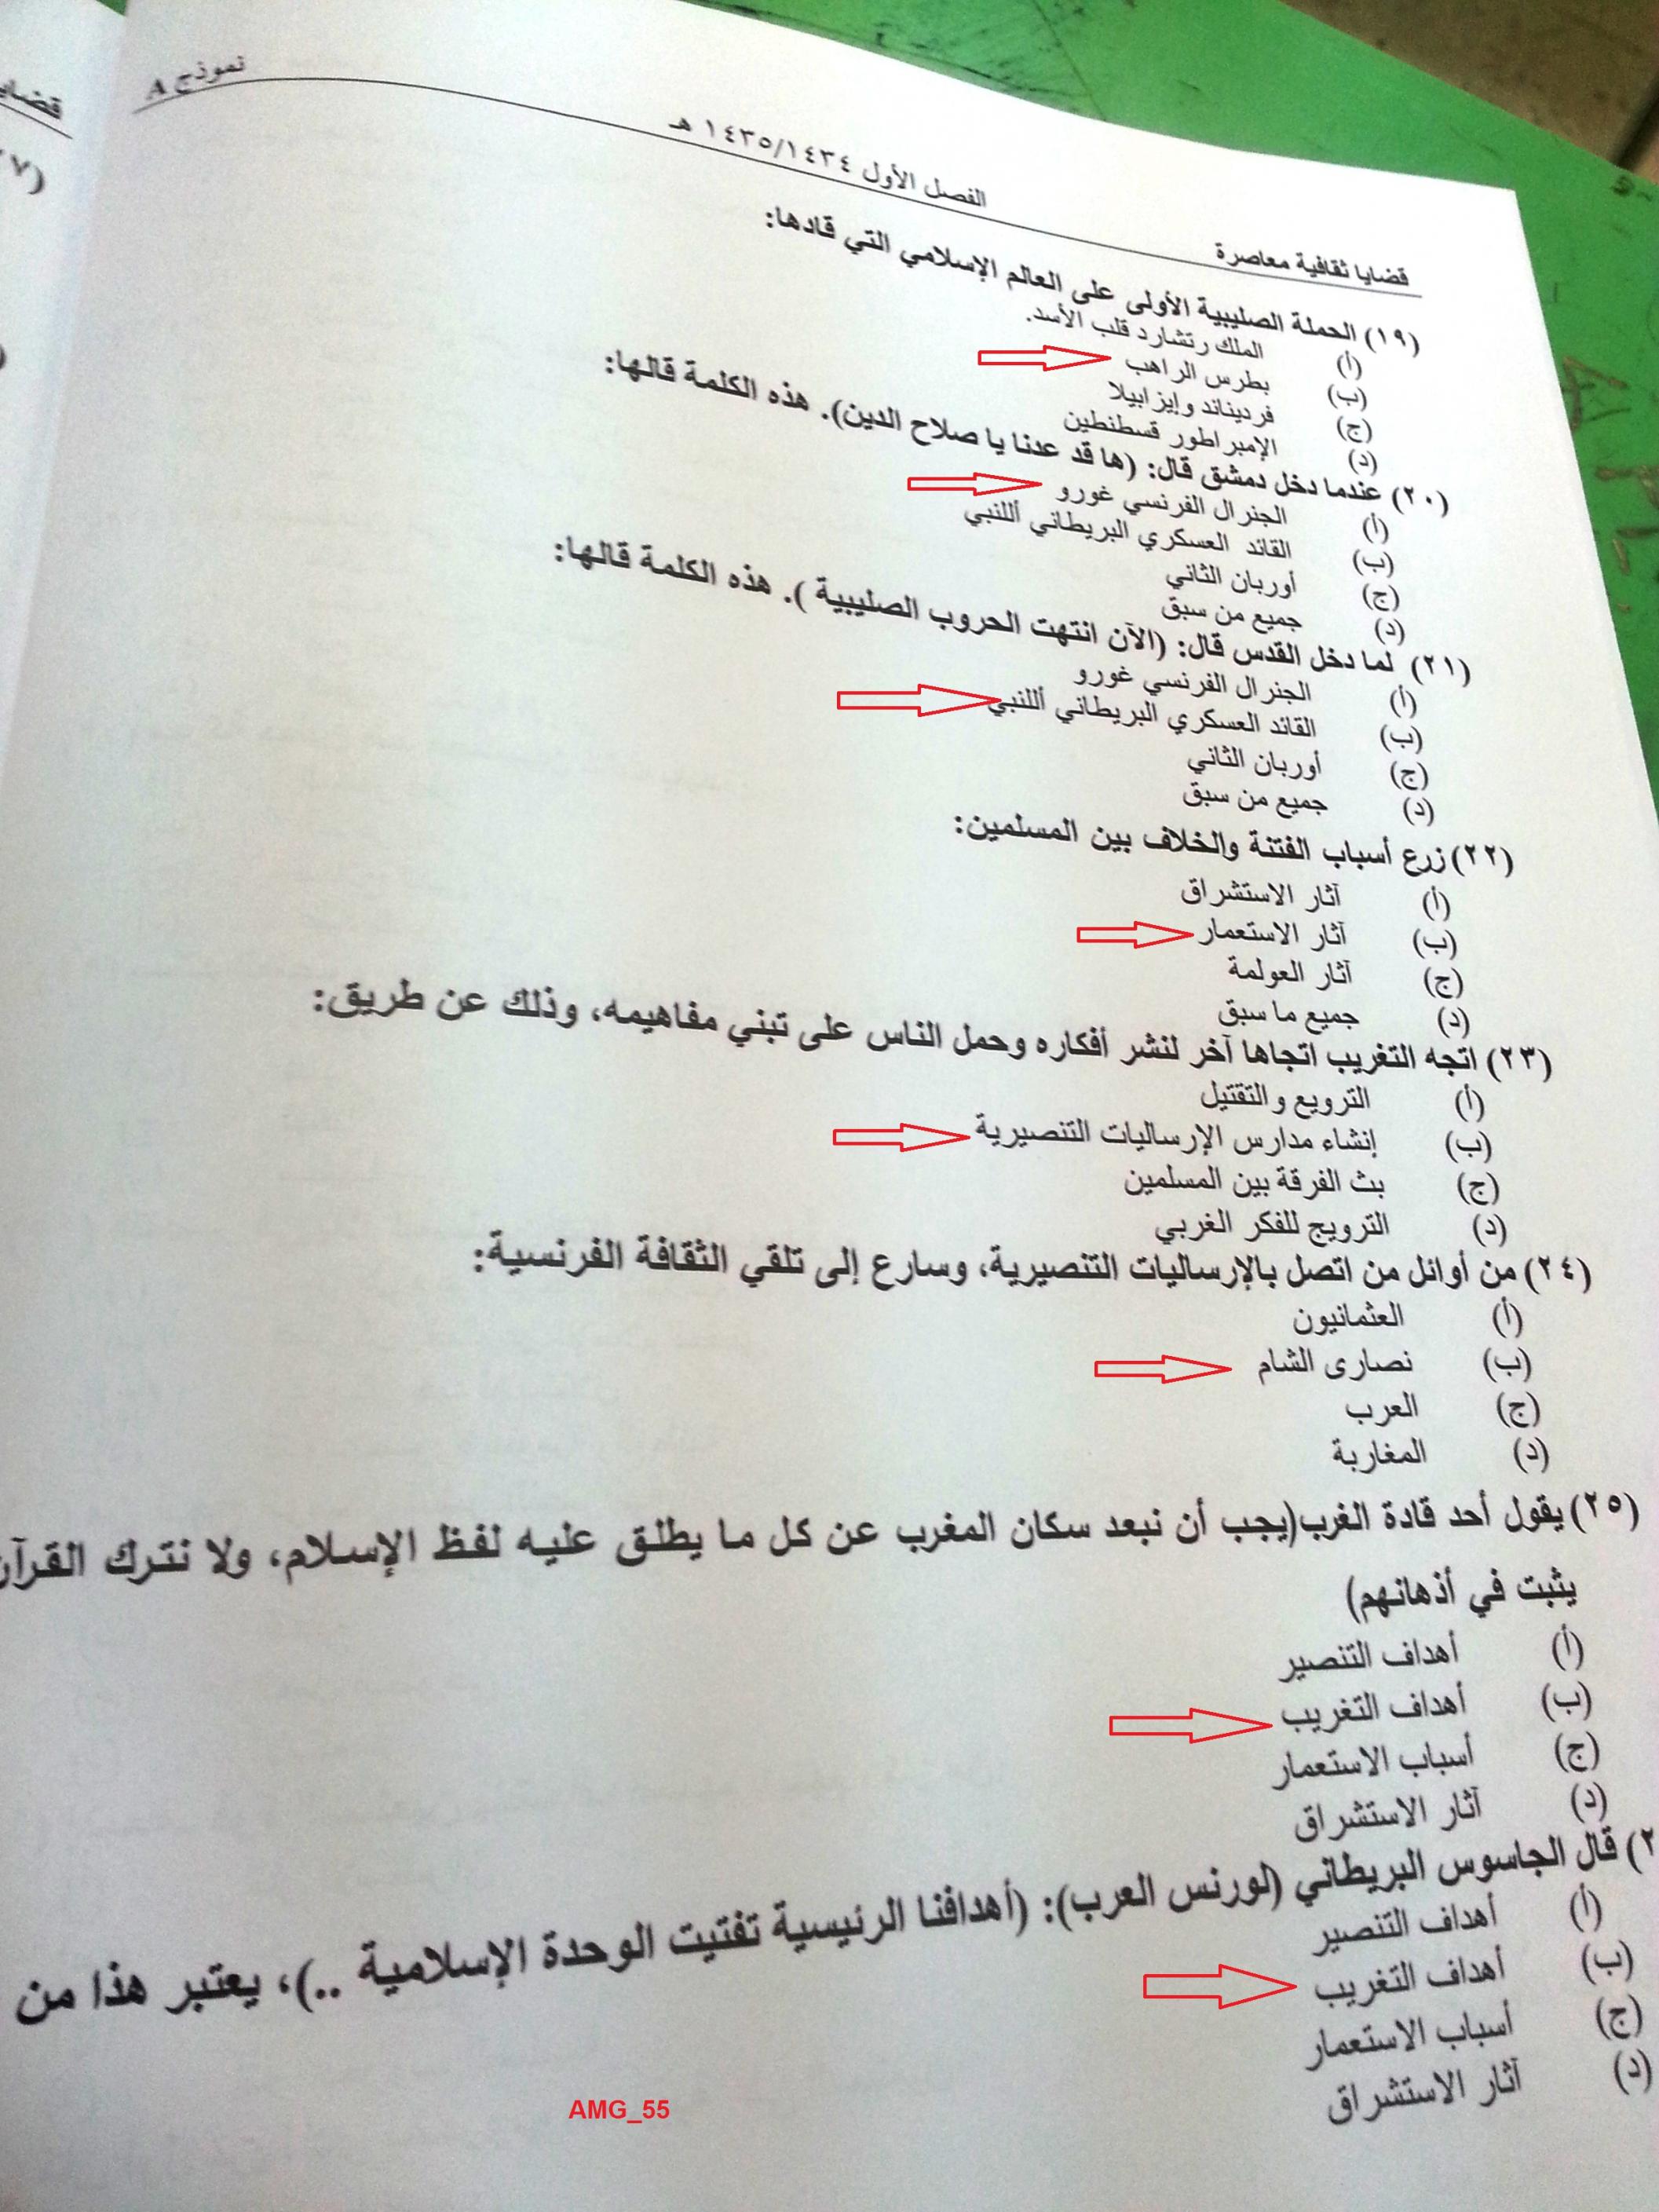 قضايا ثقافية معاصرة الفصل الأول ١٤٣٥/١٤٣٤ هـ نموذج A
(١٩) الحملة الصليبية الأولى على العالم الإسلامي التي قادها:
(أ) الملك رتشارد قلب الأسد.
(ب) بطرس الراهب
(ج) فرديناند وإيزابيلا
(د) الإمبراطور قسطنطين
(٢٠) عندما دخل دمشق قال: (ها قد عدنا يا صلاح الدين). هذه الكلمة قالها:
(أ) الجنرال الفرنسي غورو
(ب) القائد العسكري البريطاني أللنبي
(ج) أوربان الثاني
(د) جميع من سبق
(٢١) لما دخل القدس قال: (الآن انتهت الحروب الصليبية ). هذه الكلمة قالها:
(أ) الجنرال الفرنسي غورو
(ب) القائد العسكري البريطاني أللنبي
(ج) أوربان الثاني
(د) جميع من سبق
(٢٢) زرع أسباب الفتنة والخلاف بين المسلمين:
(أ) آثار الاستشراق
(ب) آثار الاستعمار
(ج) آثار العولمة
(د) جميع ما سبق
(٢٣) اتجه التغريب اتجاها آخر لنشر أفكاره وحمل الناس على تبني مفاهيمه، وذلك عن طريق:
(أ) الترويع والتقتيل
(ب) إنشاء مدارس الإرساليات التنصيرية
(ج) بث الفرقة بين المسلمين
(د) الترويج للفكر الغربي
(٢٤) من أوائل من اتصل بالإرساليات التنصيرية، وسارع إلى تلقي الثقافة الفرنسية:
(أ) العثمانيون
(ب) نصارى الشام
(ج) العرب
(د) المغاربة
(٢٥) يقول أحد قادة الغرب(يجب أن نبعد سكان المغرب عن كل ما يطلق عليه لفظ الإسلام، ولا نترك القرآن
يثبت في أذهانهم)
(أ) أهداف التنصير
(ب) أهداف التغريب
(ج) أسباب الاستعمار
(د) آثار الاستشراق
) قال الجاسوس البريطاني (لورنس العرب): (أهدافنا الرئيسية تفتيت الوحدة الإسلامية ..)، يعتبر هذا من
(أ) أهداف التنصير
(ب) أهداف التغريب
(ج) أسباب الاستعمار
(د) آثار الاستشراق
AMG_55